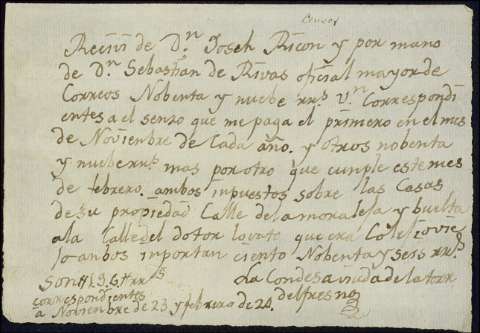 Censos
Recivi de D.n Joseh Ricon y por mano
de D.n Sebastian de Rivas oficial mayor de
Correos Nobenta y nuebe rr.s v.n Correspondi
entes a el senso que me paga el primero en el mes
de Noviembre de Cada año. y otros nobenta
y nuebe rr.s mas por otro que cunple este mes
de febrero. ambos inpuestos sobre las Casas
de su propiedad Calle de la moraleja y buelta
a la Calle del dotor que era Colejio vie
jo anbos inportan ciento Nobenta y seis rr.s
Son 196 rr.s
La Condesa viuda de la torre
correspondientes
del fresno
a Noviembre de 23 y febrero de 24